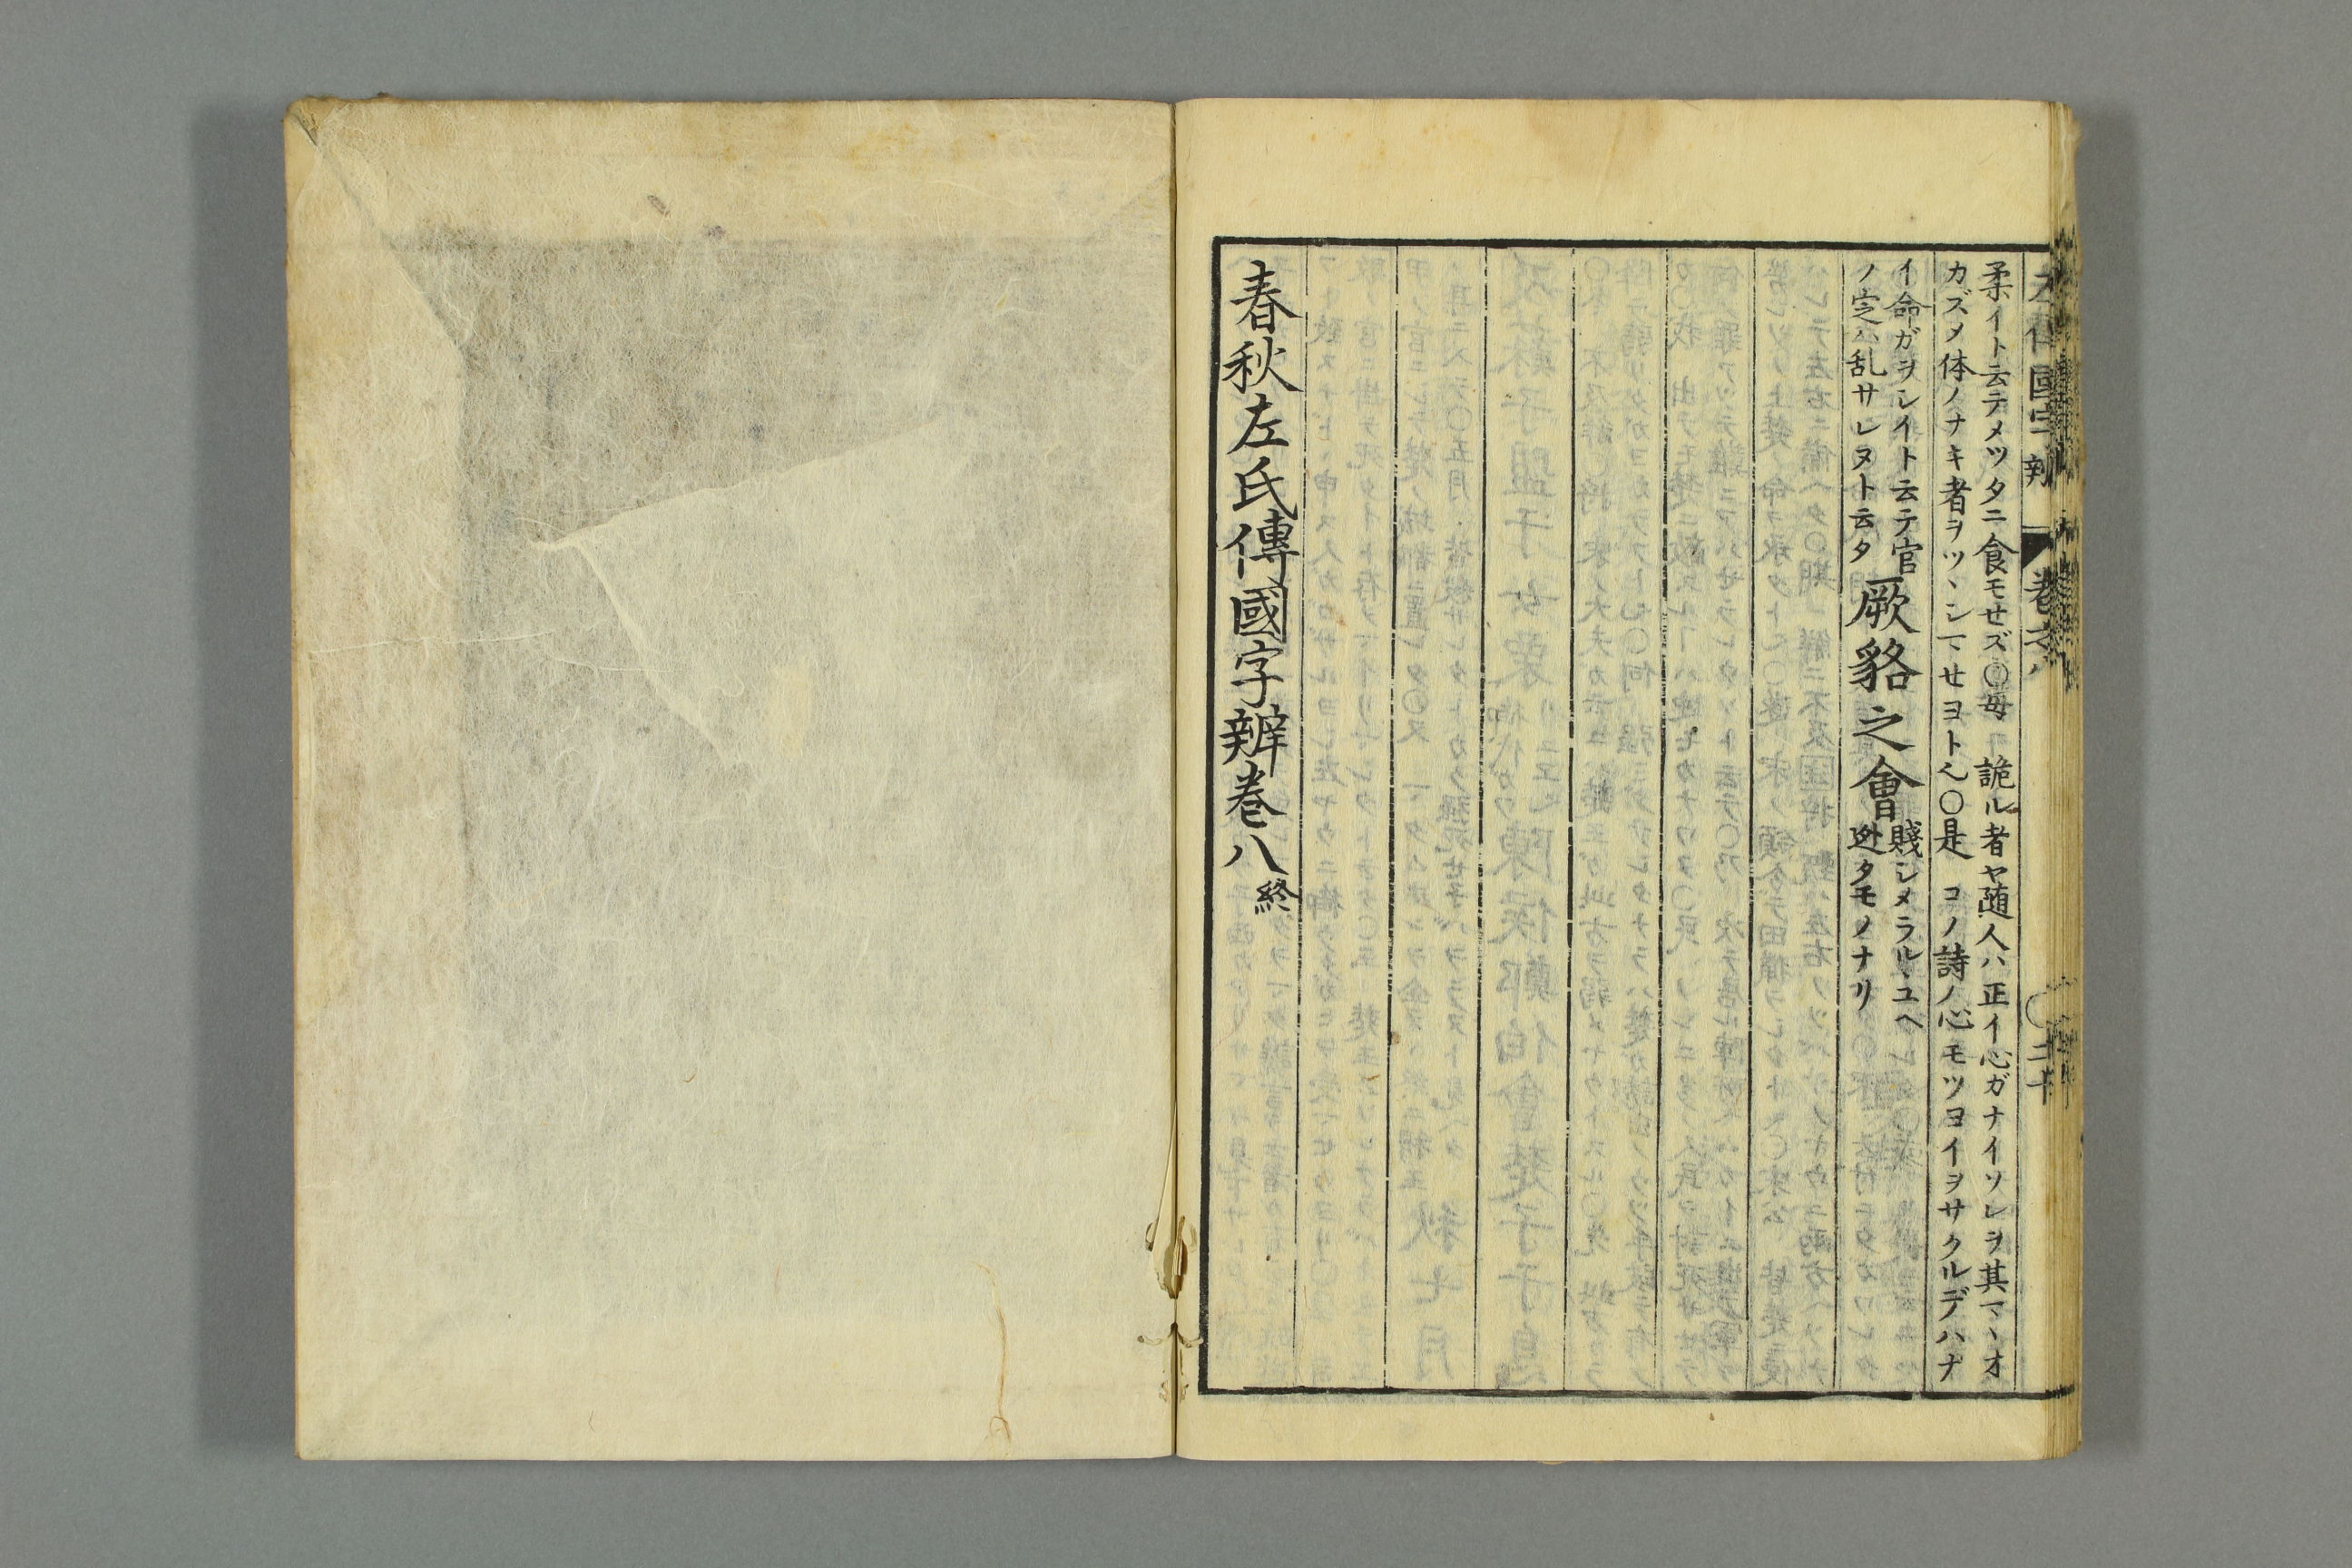 左傳國字辨 卷之八 二十
柔イト云テメツタニ食モせズ〇毎 詭ル者ヤ随人ハ正イ心ガナイソレヲ其マヽオ
カズメ体ノナキ者ヲツヽシマせヨト也〇是 コノ詩ノ心モツヨイヲサクルデハナ
イ命ガヲシイト云テ官
ノ定ハ乱サレヌト云タ
厥貉之會
賤シメラルヽユヘ
迯タモノナリ
春秋左氏傳國字辨卷八終